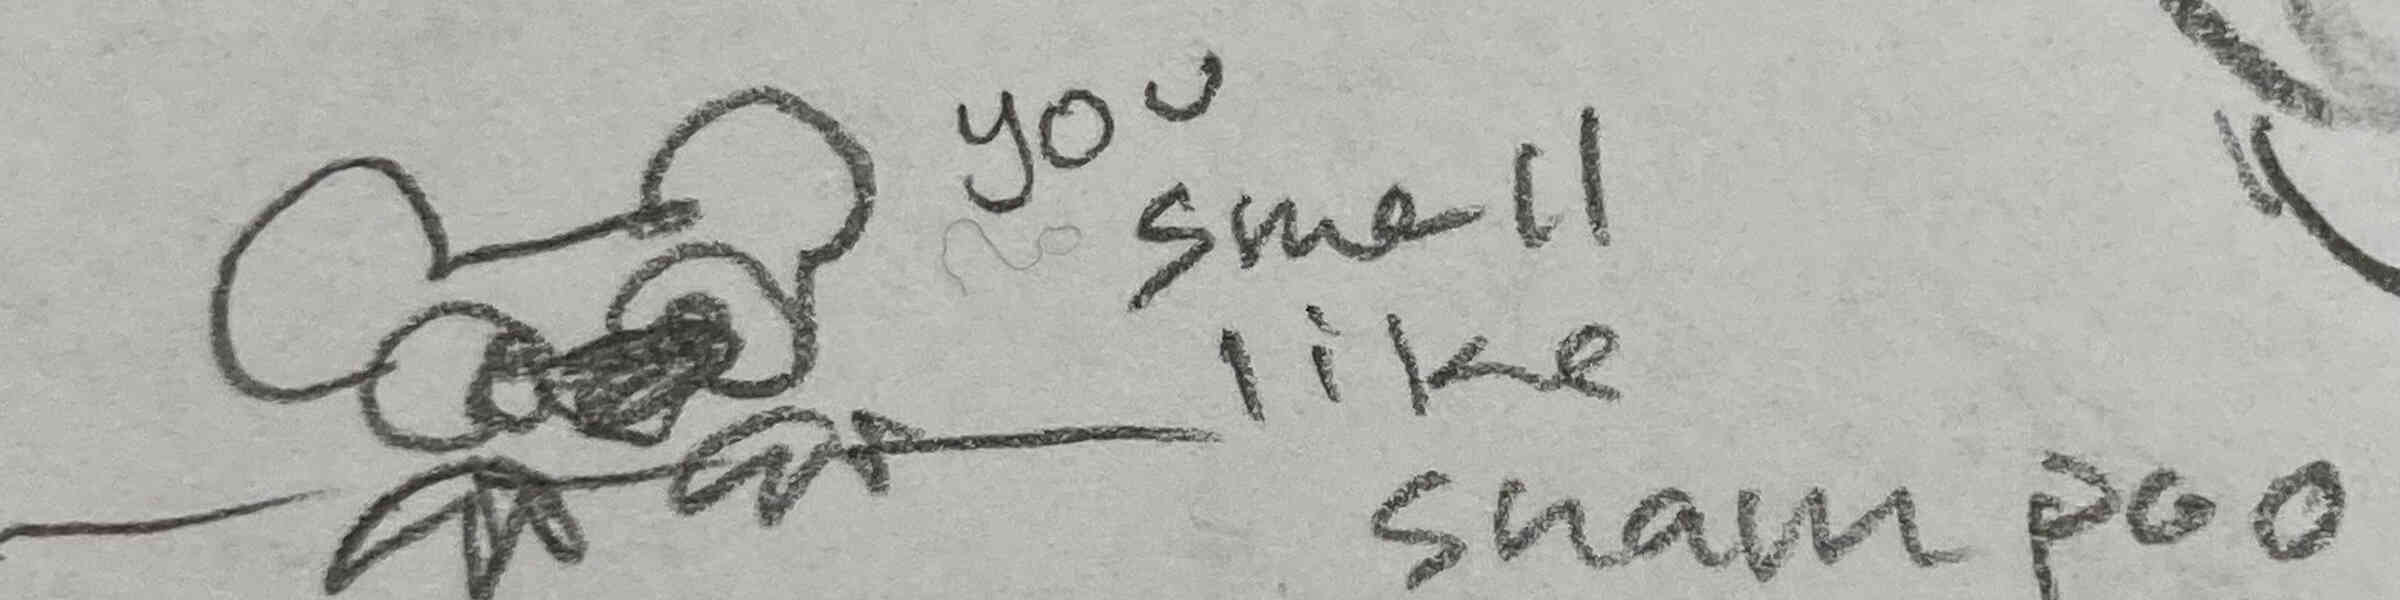 you
smell
like
shampoo